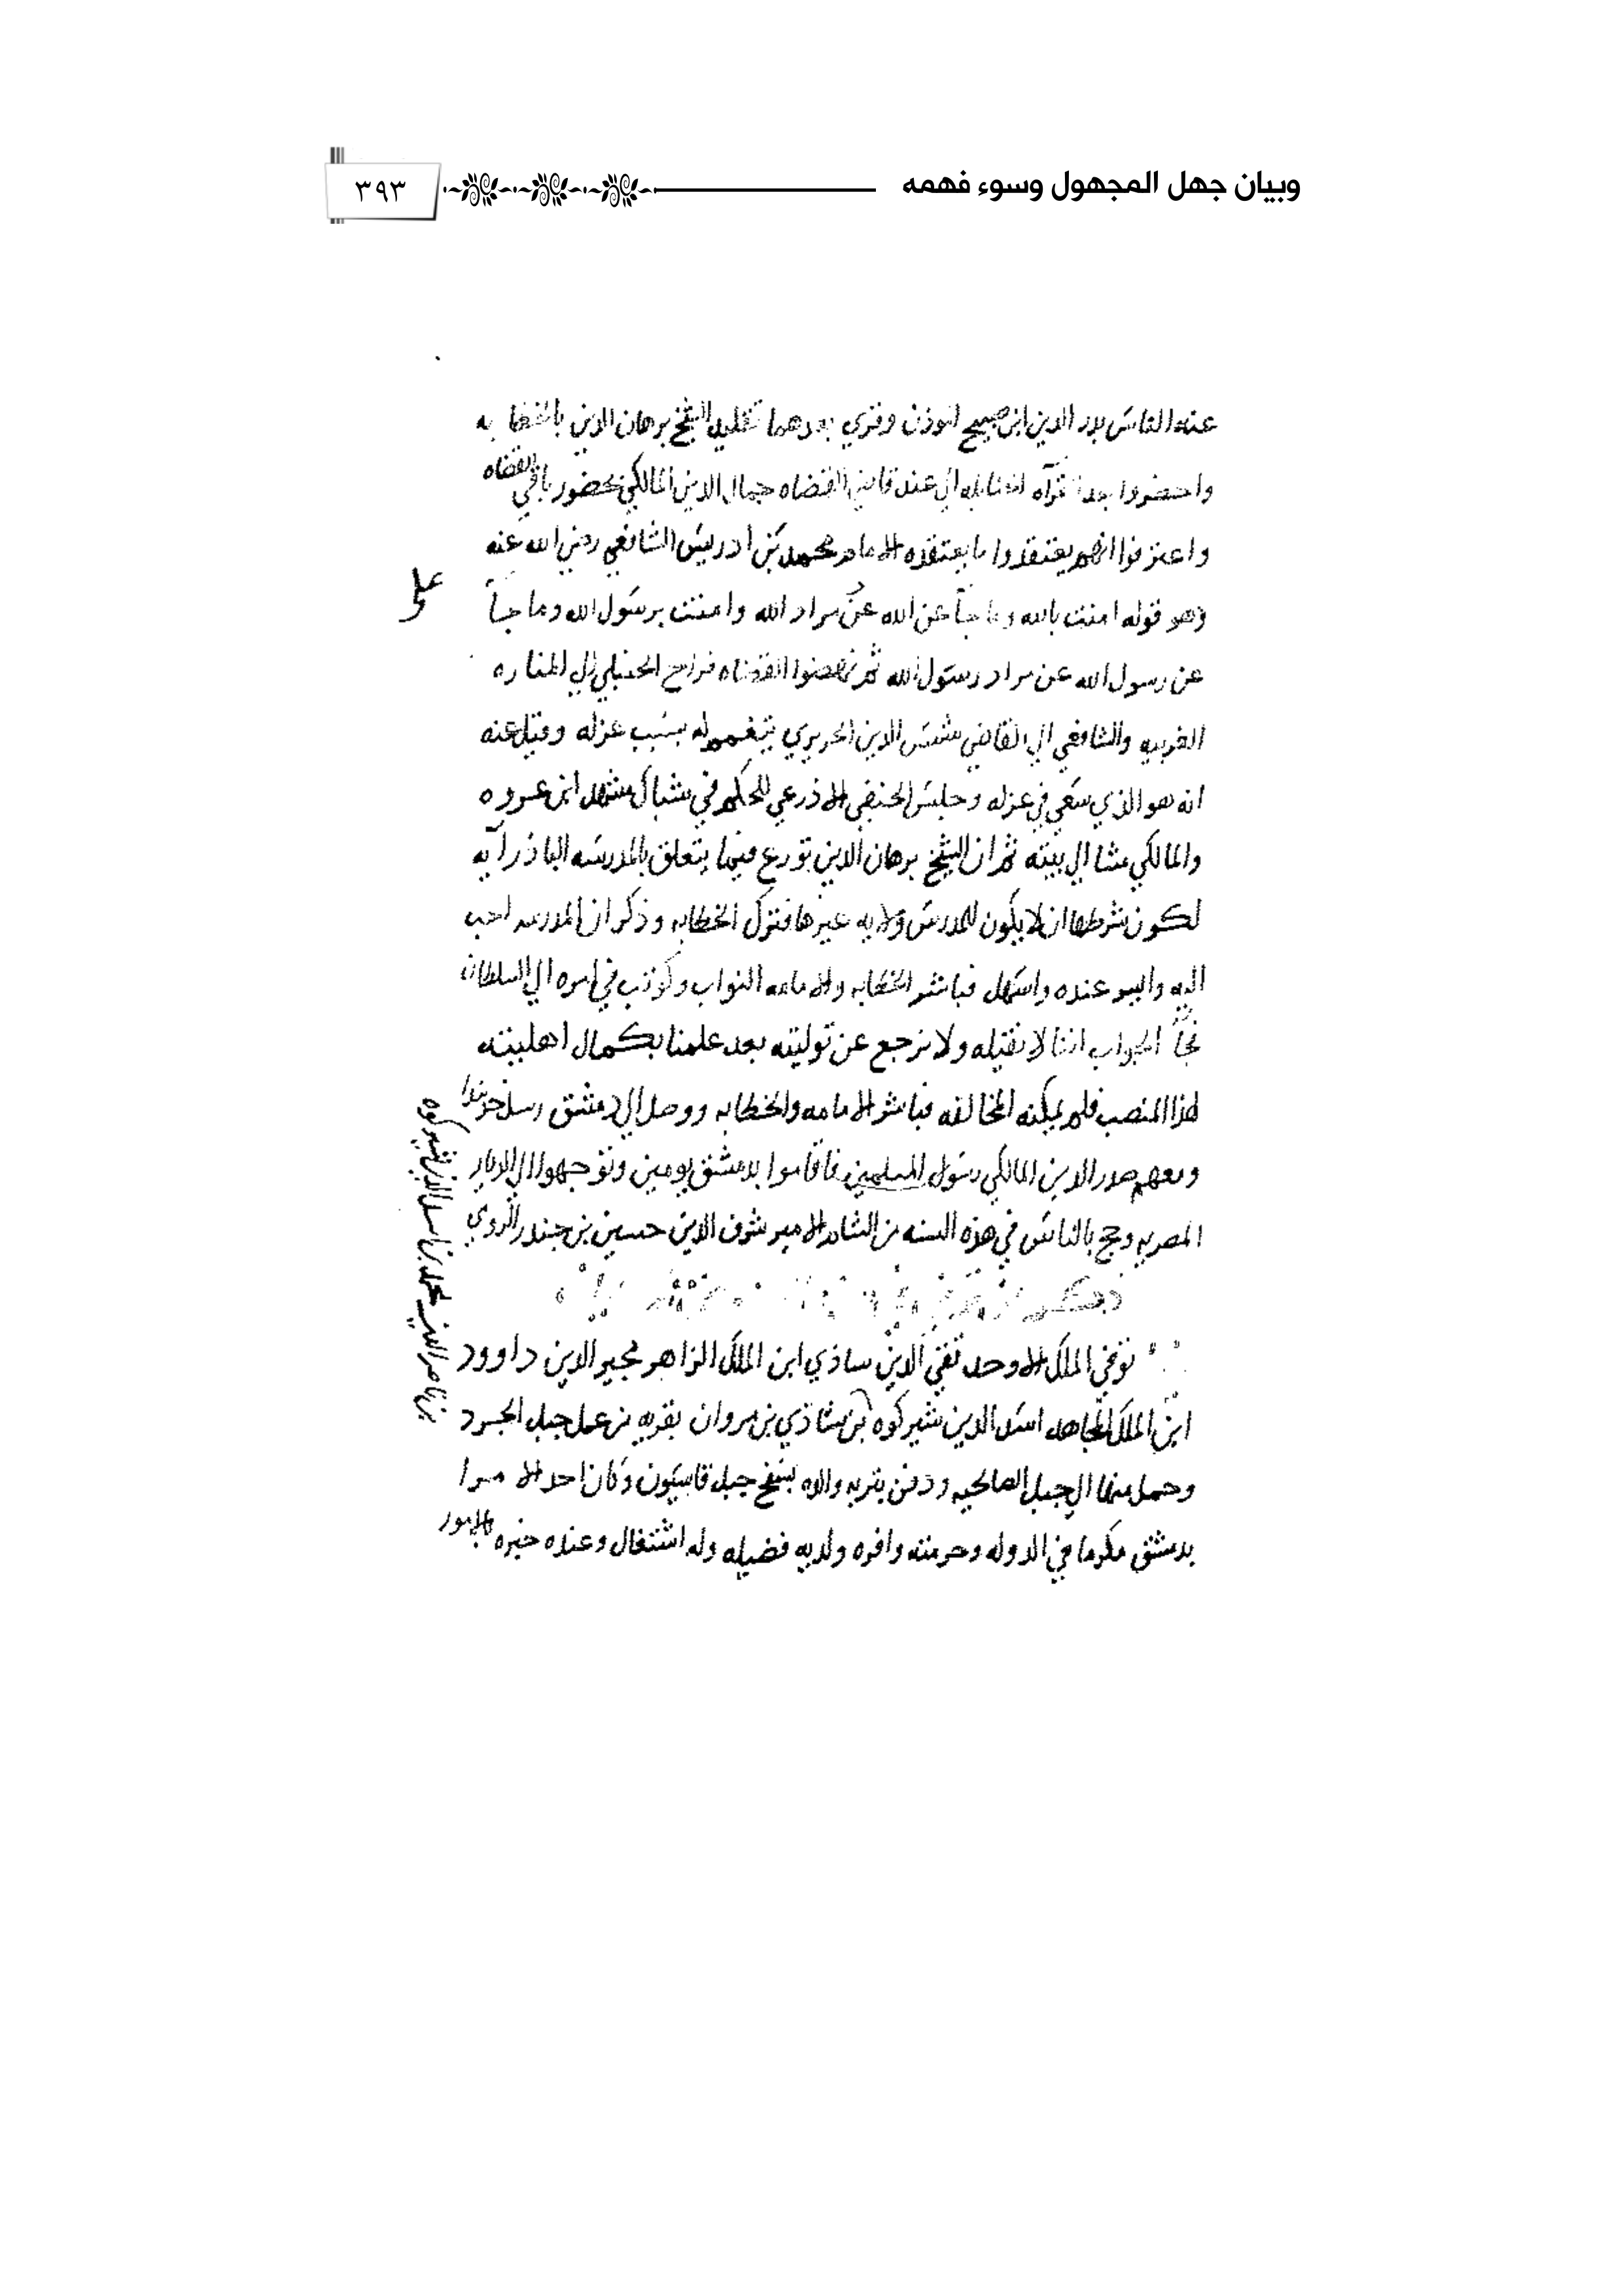 وبيان جهل المجهول وسوء فهمه
٣٩٣
عنه الناس بدر الدين ابن صبيح الموذن وقري بعدهما تقليد الشيخ برهان الدين بالخطابه
واحضروا بعد قرآه الحنابله الي عند قاضي القضاه جمال الدين المالكي بحضور باقي القضاه
واعترفوا انهم يعتقدوا ما يعتقده الامام محمد بن ادريس الشافعي رضي الله عنه
وهو قوله امنت بالله وما جآ عن الله عن مراد الله وامنت برسول الله وما جآ
على
عن رسول الله عن مراد رسول الله ثم نهضوا القضاه فراح الحنبلي الي المناره
الغربيه والشافعي الي القاضي شمس الدين الحريري يتغمم له بسبب عزله وقيل عنه
انه هو الذي سعي في عزله وجلس الحنفي الاذرعي للحكم في شباك مشهد ابن عروه
والمالكي مشا الي بيته ثم ان الشيخ برهان الدين تورع فيما يتعلق بالمدرسه الباذرآيه
لكون شرطها ان لا يكون للمدرس ولايه غيرها فترك الخطابه وذكر ان المدرسه احب
اليه عنده واستهل فباشر الخطابه والامامه النواب وكوتب في امره الي السلطان
فجآ الجواب اننا لا نقيله ولا نرجع عن توليته بعد علمنا بكمال اهليته
لهذا المنصب فلم يمكنه المخالفه فباشر الامامه والخطابه ووصل الي دمشق رسل خربندا
ومعهم صدر الدين المالكي رسول المسلمين فاقاموا بدمشق يومين وتوجهوا الي الديار
المصريه وحج بالناس في هذه السنه من الشام الامير شرف الدين حسين بن جندر الرومي
ذكر
توفي الملك الاوحد تقي الدين ساذي ابن الملك الزاهر مجير الدين داوود
ابن الملك المجاهد اسد الدين شيركوه بن شاذي بن مروان بقريه من عمل جبل الجرد
بن ناصر الدين محمد بن اسد الدين شيركوه
وحمل منها الي جبل الصالحيه ودفن بتربه والده بسفح جبل قاسيون وكان احد الامرا
بدمشق مكرما في الدوله وحرمته وافره ولديه فضيله وله اشتغال وعنده خبره بالامور